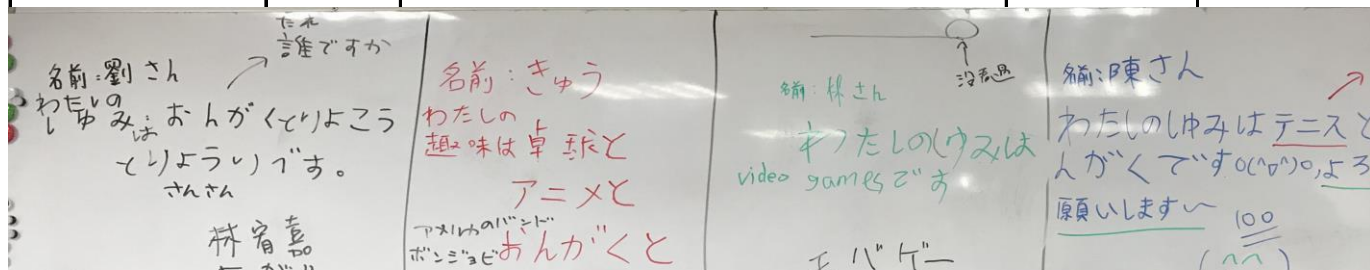 たれ
誰ですか
名前:劉さん
わたしの
しゅみは おんがくとりょこう
とりょうりです。
さんさん
林宥嘉
名前:きゅう
わたしの
趣味は卓球と
アニメと
アメリカのバンド
ボンジョビ おんがくと
没看過
名前:林さん
わたしのしゅみは
video gamesです
名前:陳さん
わたしのしゅみはテニスと
んがくです o(^o^)o,よろ
願いします〜
100
(^^)